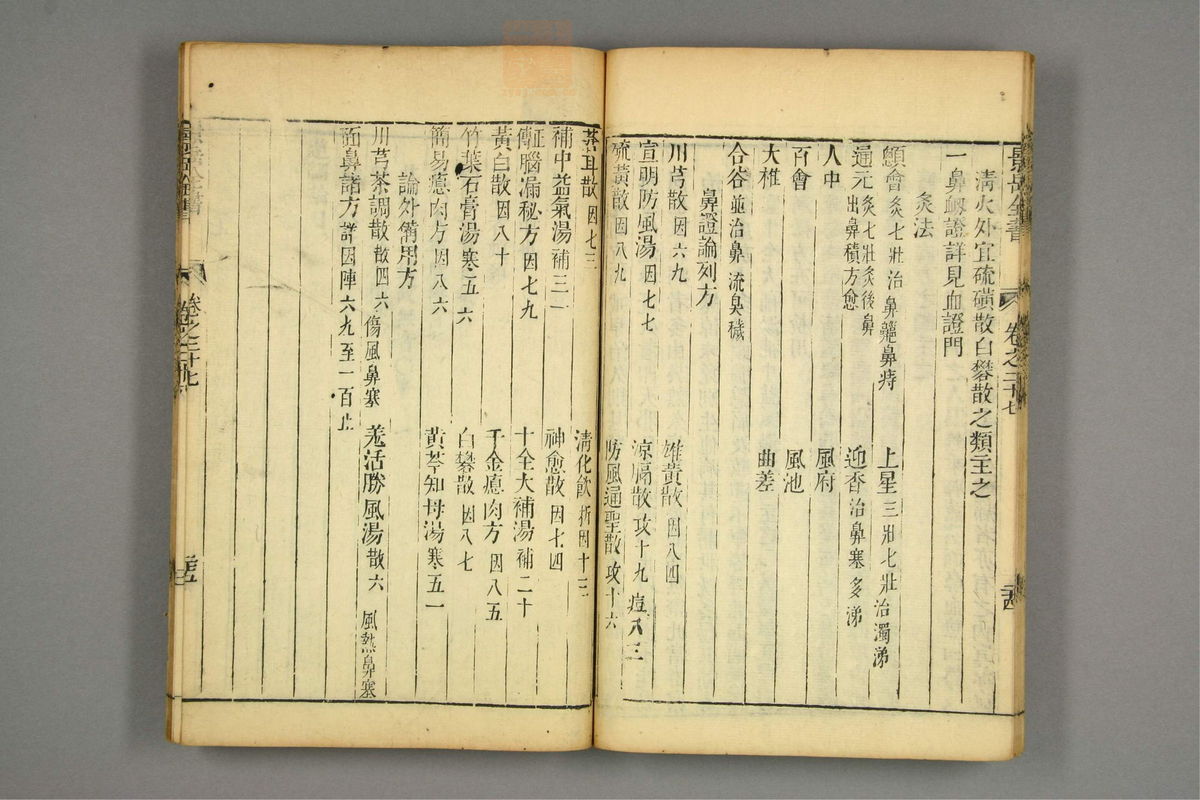 景岳全書 卷之二十七
清火外宜硫磺散白礬散之類主之
一鼻衄證詳見血證門
灸法
顖會 灸七壯 治鼻鼽鼻痔 上星 三壯七壯 治濁涕
通天 灸七壯灸後鼻出鼻積方愈 迎香 治鼻塞多涕
人中 風府
百會 風池
大椎 曲差
合谷 並治鼻流臭穢
鼻證論列方
川芎散 因六九 雄黃散 因八四
宣明防風湯 因七七 涼膈散 攻十九 痘八三
硫黃散 因八九 防風通聖散 攻十六
蒼耳散 因七三 清化飲 新因十三
補中益氣湯 補三一 神愈散 因七四
腦漏秘方 因七九 十全大補湯 補二十
黃白散 因八十 千金瘜肉方 因八五
竹葉石膏湯 寒五六 白礬散 因八七
簡易瘜肉方 因八六 黃芩知母湯 寒五一
論外備用方
川芎茶調散 散四六 傷風鼻塞 羗活勝風湯 散六 風熱鼻塞
面鼻諸方 詳因陣六九至一百止
卷之二十七